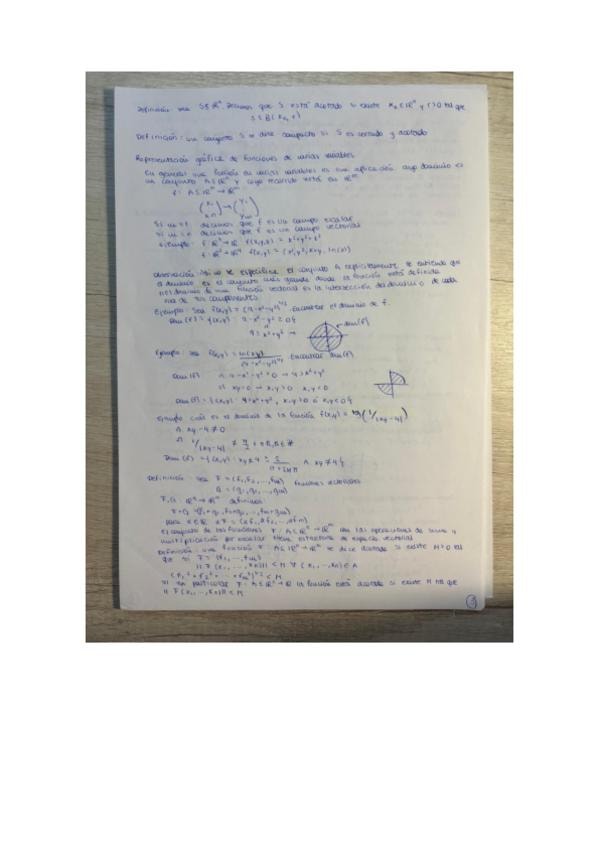 Definición: sea S⊆ℝⁿ. Decimos que S está acotado si existe x₀∈ℝⁿ y r>0 tal que
S⊆B(x₀, r)
Definición: un conjunto S se dice compacto si S es cerrado y acotado
Representación gráfica de funciones de varias variables
En general una función en varias variables es una aplicación cuyo dominio es
un conjunto A⊆ℝⁿ y cuyo recorrido está en ℝᵐ
f: A⊆ℝⁿ → ℝᵐ
(x₁ xn) → (y₁ ym)
Si m=1 decimos que f es un campo escalar
decimos que f es un campo vectorial
ejemplo: f: ℝ³→ℝ f(x,y,z) =
f(x,y) = (x², y², x+y, ln(x))
Observación: si no se especifica el conjunto A explícitamente se entiende que
el dominio es el conjunto más grande donde la función está definida
el dominio de una función vectorial es la intersección del dominio de cada
una de sus componentes
Ejemplo: Sea f(x,y) = (9-x²-y²)^1/2. Encontrar el dominio de f.
Dom(f) = {(x,y): 9-x²-y² ≥ 0}
9 ≥ x²+y² → Dom(f)
Ejemplo: sea f(x,y) = ln(xy) Encontrar Dom(f)
Dom(f)
xy>0 → x,y>0 x,y<0
x,y>0 ó x,y<0}
Ejemplo: cuál es el dominio de la función f(x,y) = tg(1/(xy-4))
xy-4≠0
Dom(f) = {(x,y): ∧ xy≠4}
Definición: sea F=(f₁,f₂,...,fm) funciones vectoriales
G=(g₁,g₂,...,gm)
F,G: ℝⁿ→ℝᵐ definimos
F+G =(f₁+g₁, f₂+g₂,..., fm+gm)
para α∈ℝ αF=(αf₁, αf₂,...,αfm)
El conjunto de las funciones F: A⊆ℝⁿ→ℝᵐ con las operaciones de suma y
multiplicación por escalar tiene estructura de espacio vectorial
Definición: una función F: A⊆ℝⁿ→ℝᵐ se dice acotada si existe M>0 tal
que si F=(f₁,...,fm)
||F(x₁,...,xn)|| < M ∀ (x₁,...,xn)∈A
(f₁²+f₂²+...+fm²)^1/2 < M
Si en particular F: A⊆ℝⁿ→ℝ la función está acotada si existe M tal que
|| F(x₁,...,xn)|| < M